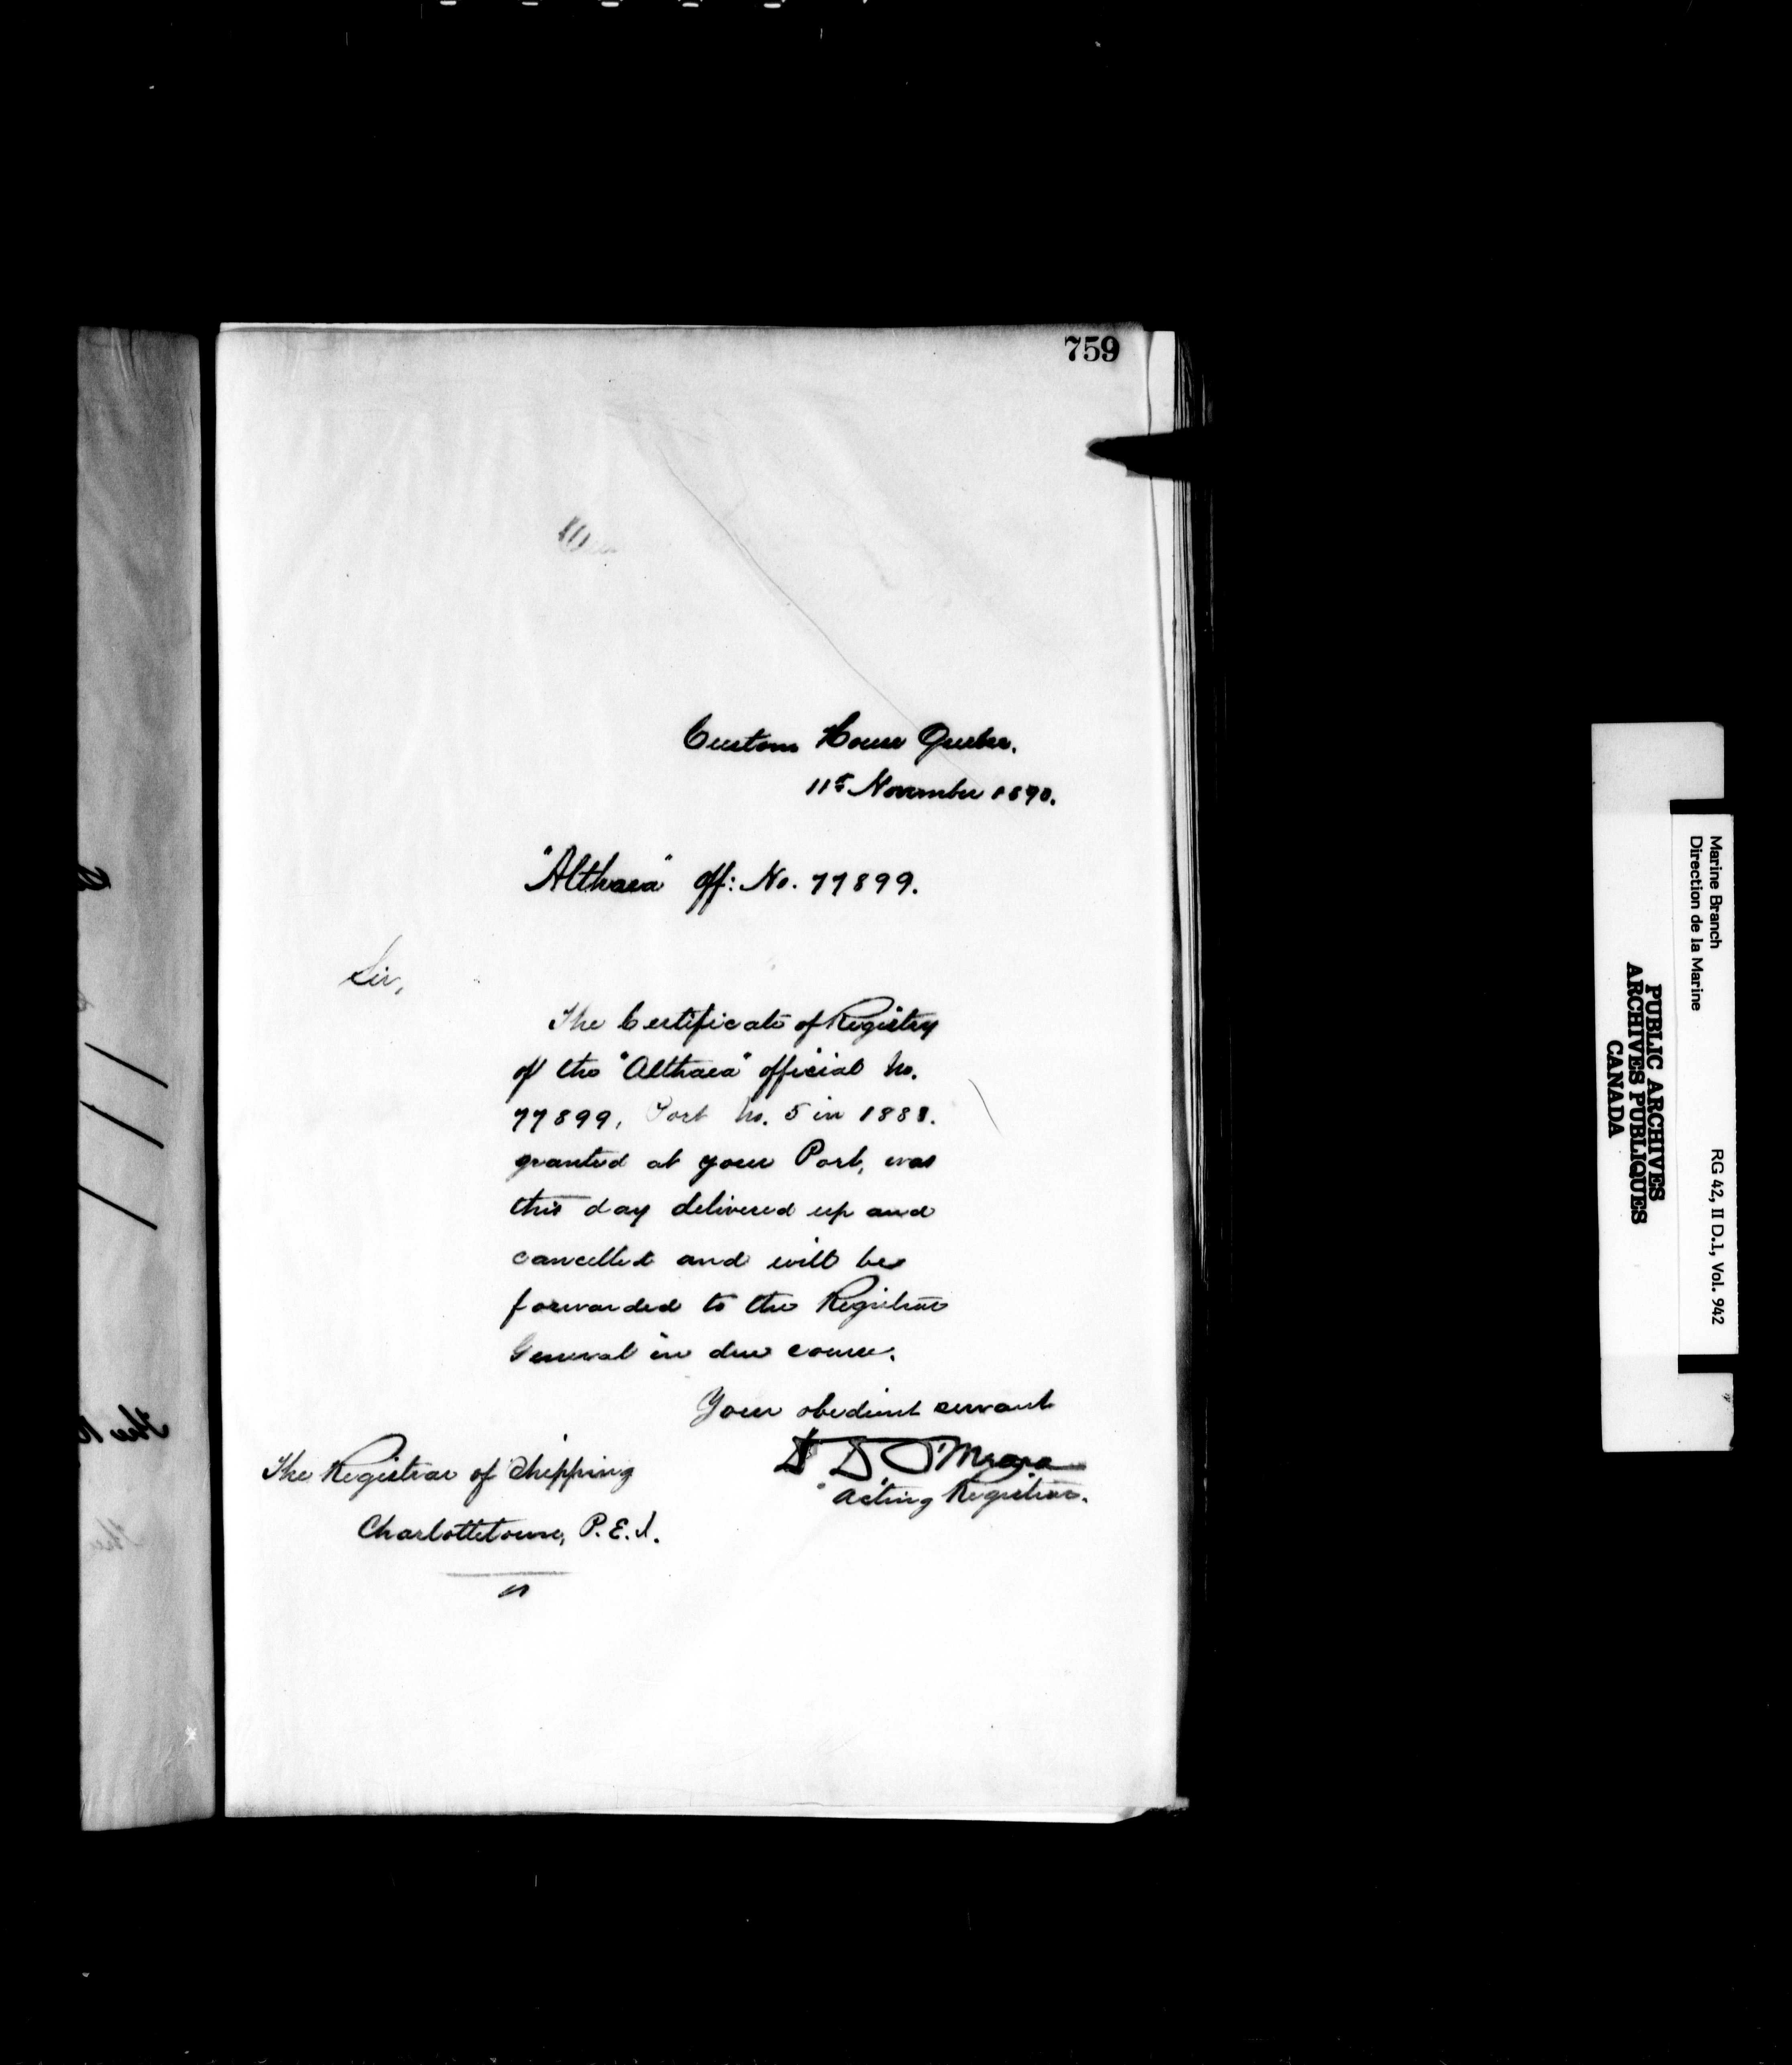 759
Custom House Quebec.
11th November 1890.
"Althaea" Off: No. 77899.
Sir,
The Certificate of Registry
of the "Althaea" official No.
77899, Port No. 5 in 1888.
granted at your Port, was
this day delivered up and
cancelled and will be
forwarded to the Registrar
General in due course.
Your obedient servant
D D O'Meara
Acting Registrar.
The Registrar of Shipping
Charlottetown, P.E.I.
Marine Branch
Direction de la Marine
RG 42, II D.1, Vol. 942
PUBLIC ARCHIVES
ARCHIVES PUBLIQUES
CANADA